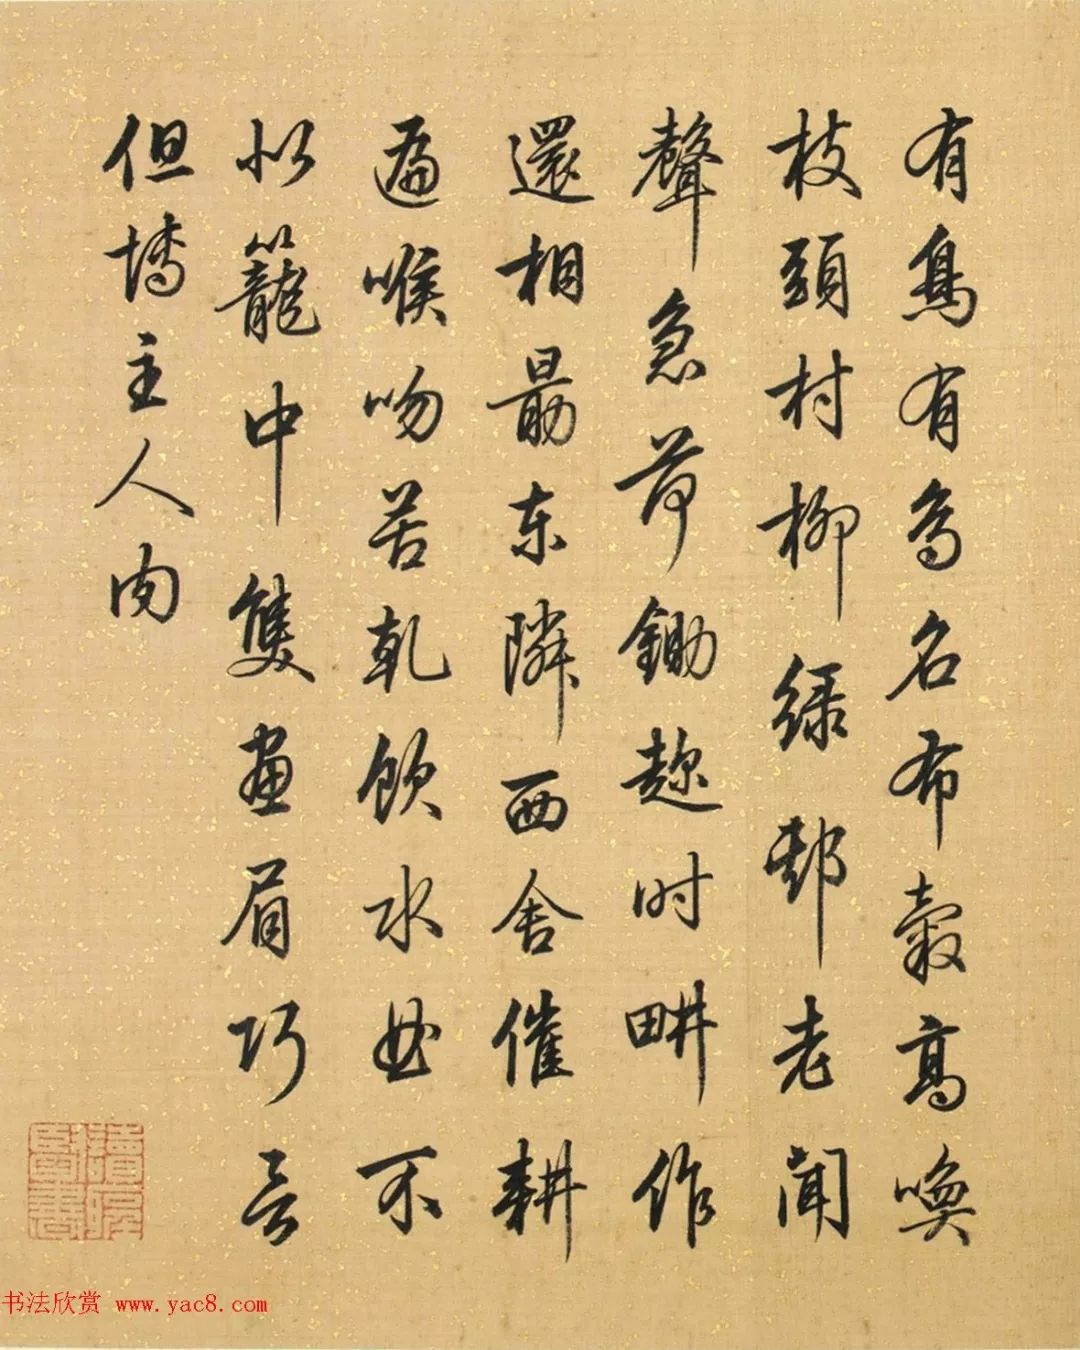 有鳥有鳥名布穀高喚
枝頭村柳綠老聞
聲急荷鋤趂时畊作
還相勗东隣西舍催耕
遍喉吻苦乾飲水曲不
似籠中雙畫眉巧言
但博主人肉
书法欣赏 www.yac8.com